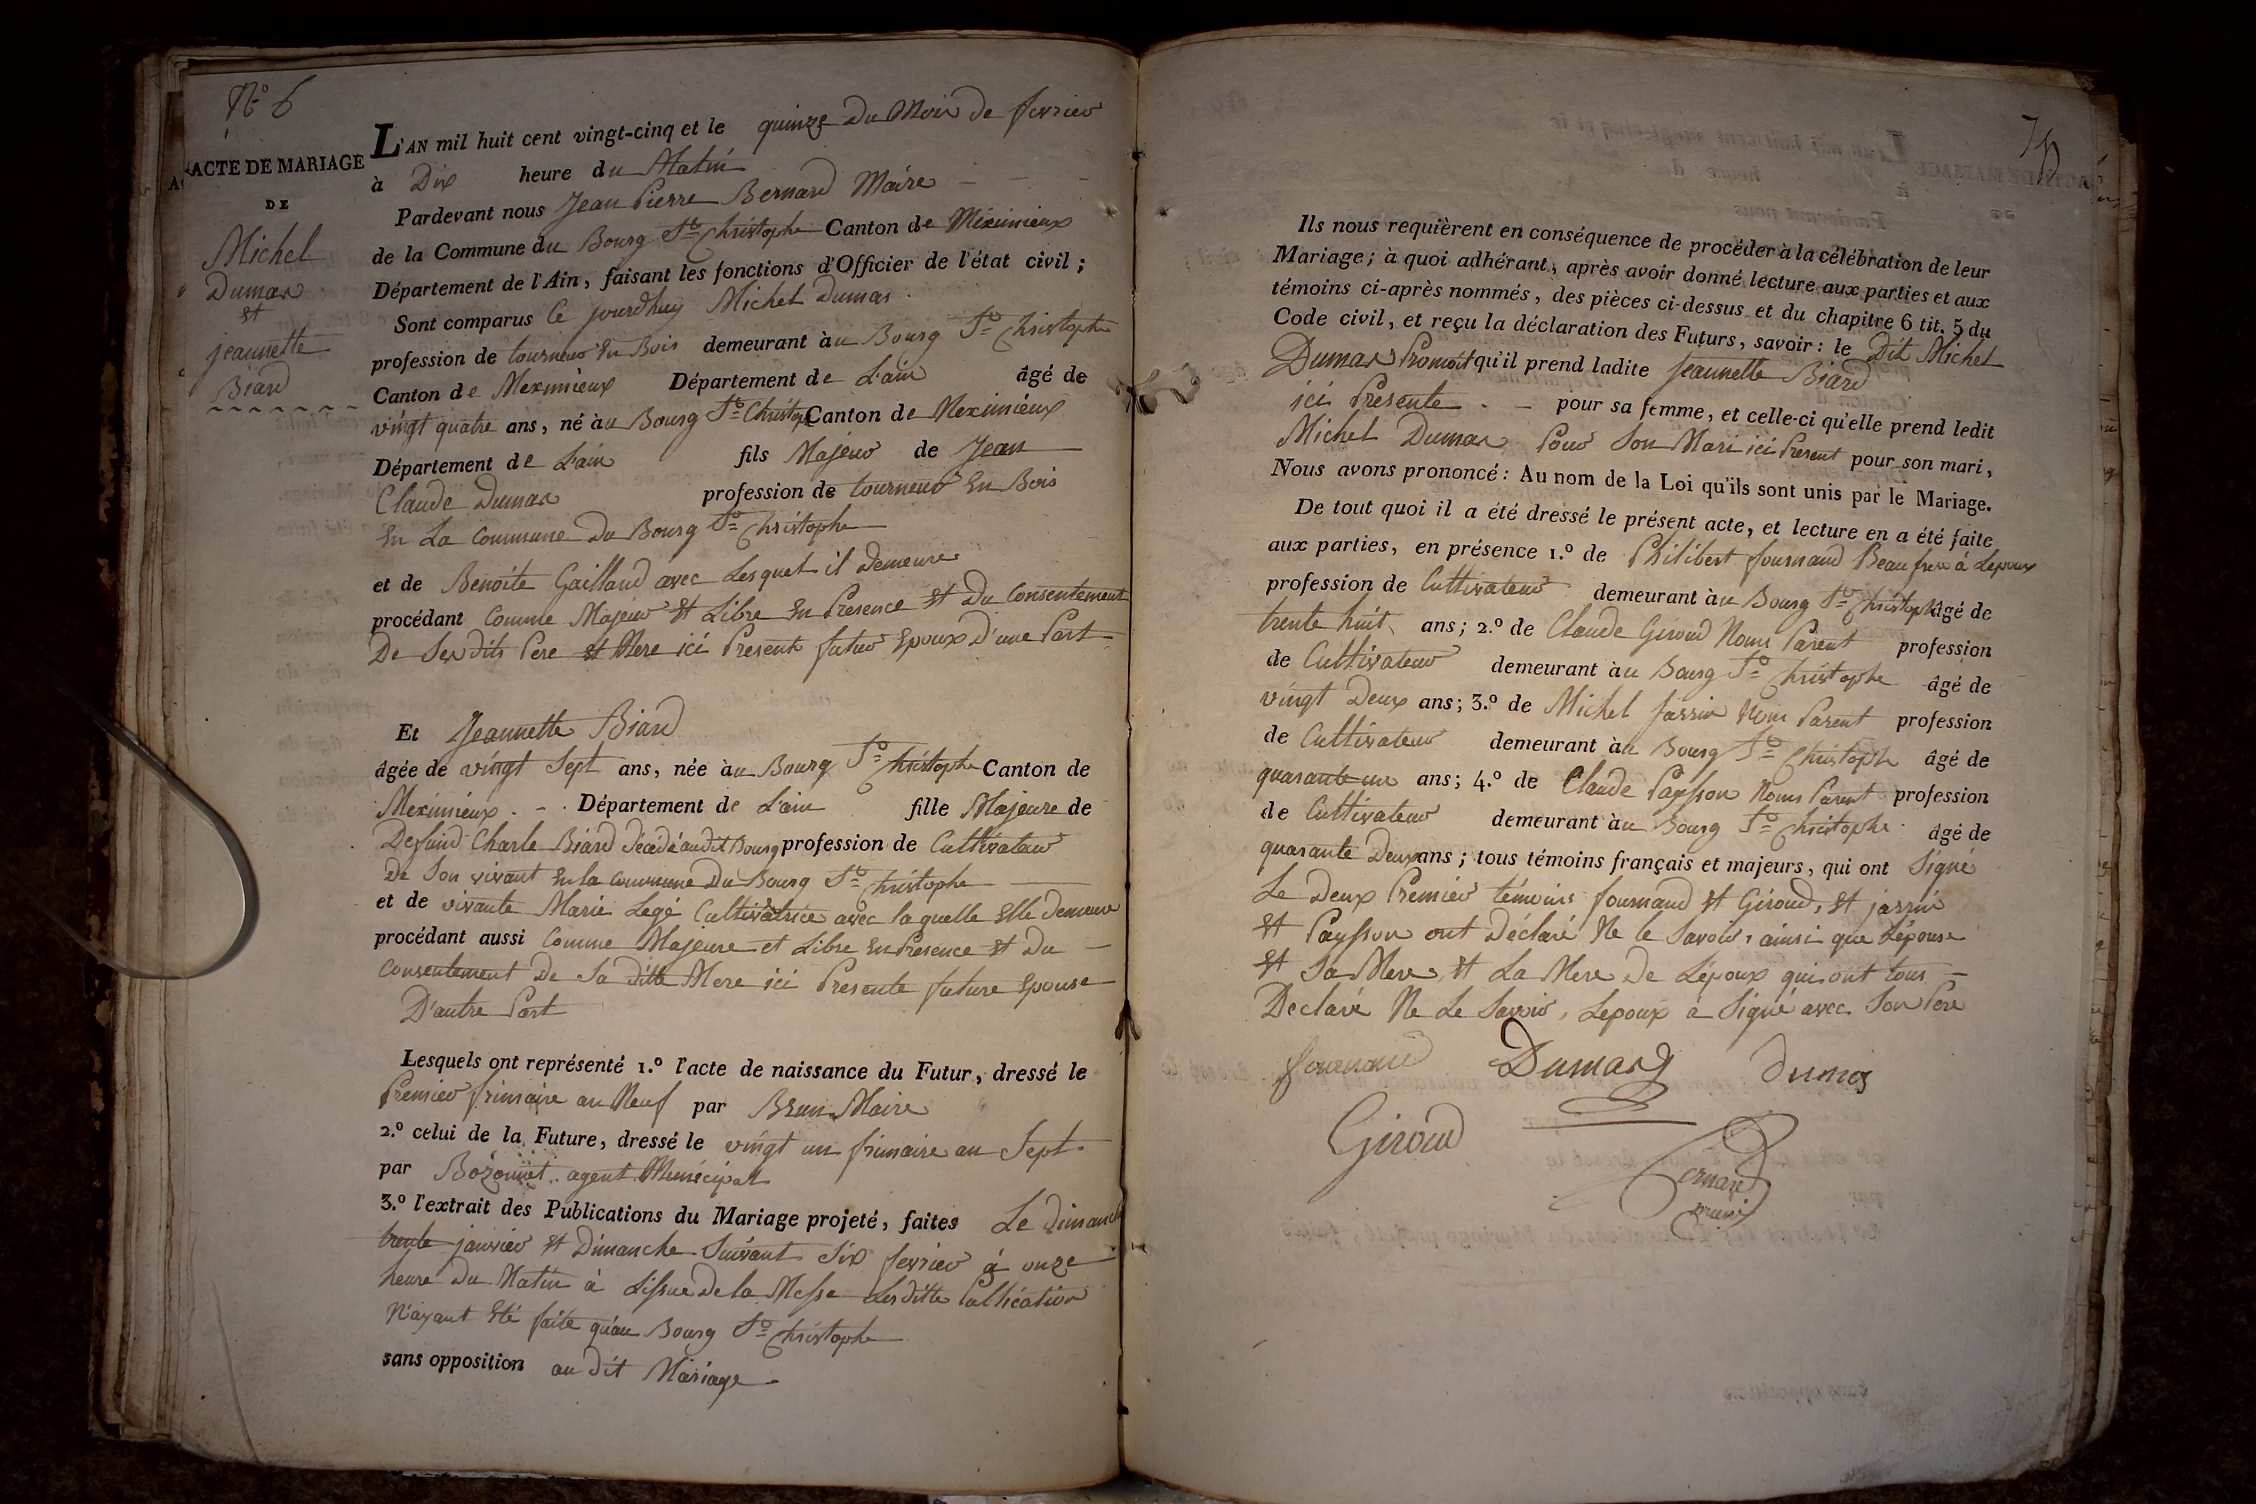 N.o 6
ACTE DE MARIAGE
DE
Michel
Dumas
et
jeannette
Biard
L'AN mil huit cent vingt-cinq et le quinze Du Mois de fevrier
à Dix heure du Matin
Pardevant nous Jean Pierre Bernard Maire
de la Commune du Bourg St Christophe Canton de Meximieux
Département de l'Ain, faisant les fonctions d'Officier de l'état civil;
Sont comparus Ce jourdhuy Michel Dumas
profession de tourneur en Bois demeurant àu Bourg St Christophe
Canton de Meximieux Département de L'ain âgé de
vingt quatre ans, né àu Bourg St Christop Canton de Meximieux
Département de L'ain fils Majeur de Jean
Claude Dumas profession de tourneur en Bois
En La Commune Du Bourg St Christophe
et de Benoite Gailland avec Lesquel il Demeure
procédant Comme Majeur et Libre En Presence et Du Consentement
De Ses dits Pere et Mere ici Present futur Epoux d'une Part
Et Jeannette Biard
âgée de vingt Sept ans, née àu Bourg St Christophe Canton de
Meximieux Département de L'ain fille Majeure de
Defund Charle Biard Décédé audit Bourg profession de Cultivateur
De Son vivant en la Commune Du Bourg St Christophe
et de vivante Marie Legé Cultivatrice avec laquelle Elle demeure
procédant aussi Comme Majeure et Libre En Presence et Du
Consentement De Sa ditte Mere ici Presente future Epouse
D'autre Part
Lesquels ont représenté 1.º l'acte de naissance du Futur, dressé le
Premier frimaire an Neuf par Brun Maire
2.º celui de la Future, dressé le vingt un frimaire an Sept
par Bozonnet agent Municipal
3.º l'extrait des Publications du Mariage projeté, faites Le Dimanche
trente janvier et Dimanche Suivant Six fevrier à onze
heure Du Matin à Lissue De la Messe Lesditte Publication
N'ayant Eté faite qu'au Bourg St Christophe
sans opposition au dit Mariage
Ils nous requièrent en conséquence de procéder à la célébration de leur
Mariage; à quoi adhérant, après avoir donné lecture aux parties et aux
témoins ci-après nommés, des pièces ci-dessus et du chapitre 6 tit. 5 du
Code civil, et reçu la déclaration des Futurs, savoir: le Dit Michel
Dumas Promoit qu'il prend ladite Jeannette Biard
ici Presente pour sa femme, et celle-ci qu'elle prend ledit
Michel Dumas Pour Son Mari ici Present pour son mari,
Nous avons prononcé: Au nom de la Loi qu'ils sont unis par le Mariage.
De tout quoi il a été dressé le présent acte, et lecture en a été faite
aux parties, en présence 1.º de Philibert fournand Beau frere à Lepoux
profession de Cultivateur demeurant àu Bourg St Christoph âgé de
trente huit ans; 2.º de Claude Giroud Nomi Parent profession
de Cultivateur demeurant àu Bourg St Christophe âgé de
vingt Deux ans; 3.º de Michel jarrin Nom Parent profession
de Cultivateur demeurant àu Bourg St Christophe âgé de
quarante un ans; 4.º de Claude Paysson Nom Parent profession
de Cultivateur demeurant àu Bourg St Christophe âgé de
quarante Deux ans; tous témoins français et majeurs, qui ont Signé
Le Deux Premier témoins fournand et Giroud, et jarrin
et Paysson ont Déclaré Ne le Savoir, ainsi que L'épouse
et Sa Mere, et La Mere De L'époux qui ont tous
Declaré Ne Le Savoir, Lepoux a Signé avec Son Pere
fournand Dumas dumas
Giroud
Bernard
maire